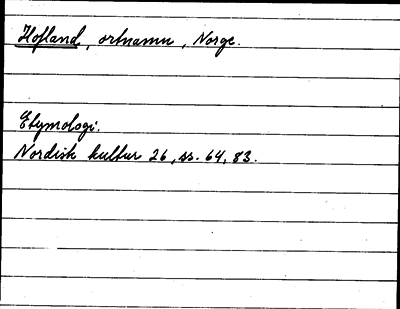 Hofland, ortnamn, Norge.
Etymologi.
Nordisk kultur 26, ss. 64, 83.